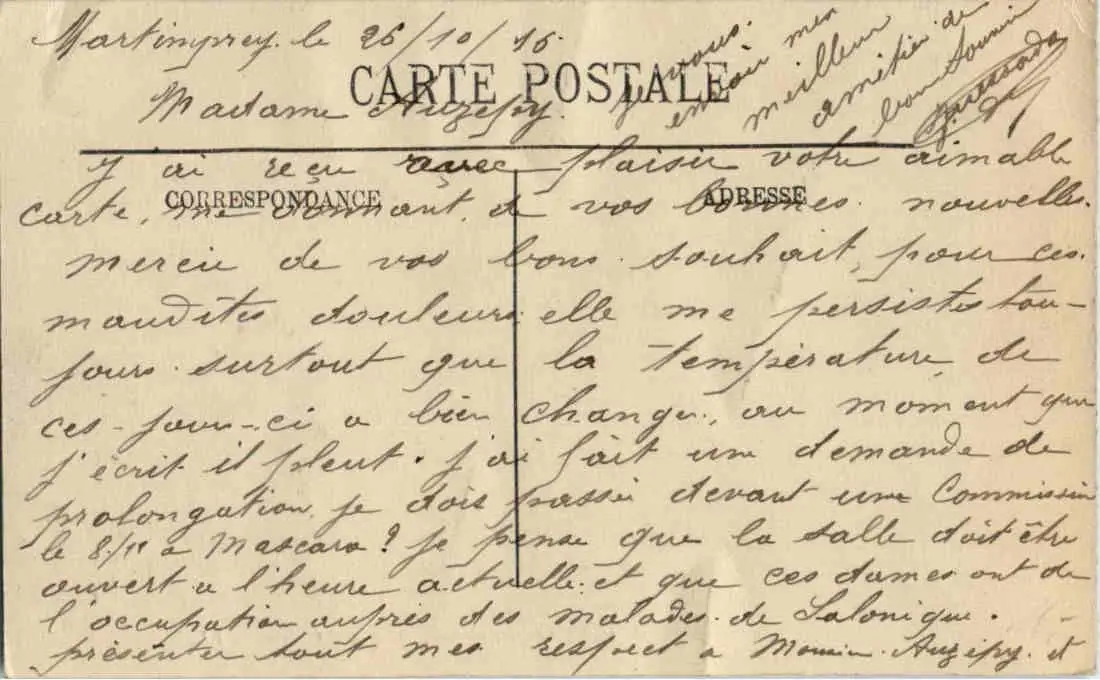 Martimprey. le 26/10/15.
CARTE POSTALE
Madame Auzépy.
j'ai reçu avec plaisir votre aimable
CORRESPONDANCE
ADRESSE
carte, me donnant, de vos bonnes nouvelles.
merciu de vos bons souhait, pour ces
maudites douleurs elle me persistes tou-
jours surtout que la température de
ces-jours-ci a bien changer, au moment que
j'écrit il pleut. j'ai fait une demande de
prolongation, je dois passer devant une Commission
le 8/11 a Mascara? Je pense que la salle doit être
ouvert a l'heure actuelle. et que ces dames ont de
l'occupation auprès des malades de Salonique.
présenter tout mes respect a Auzépy. et
Je vous
envoi mes
meilleur
amitiér de
bon Souvenir